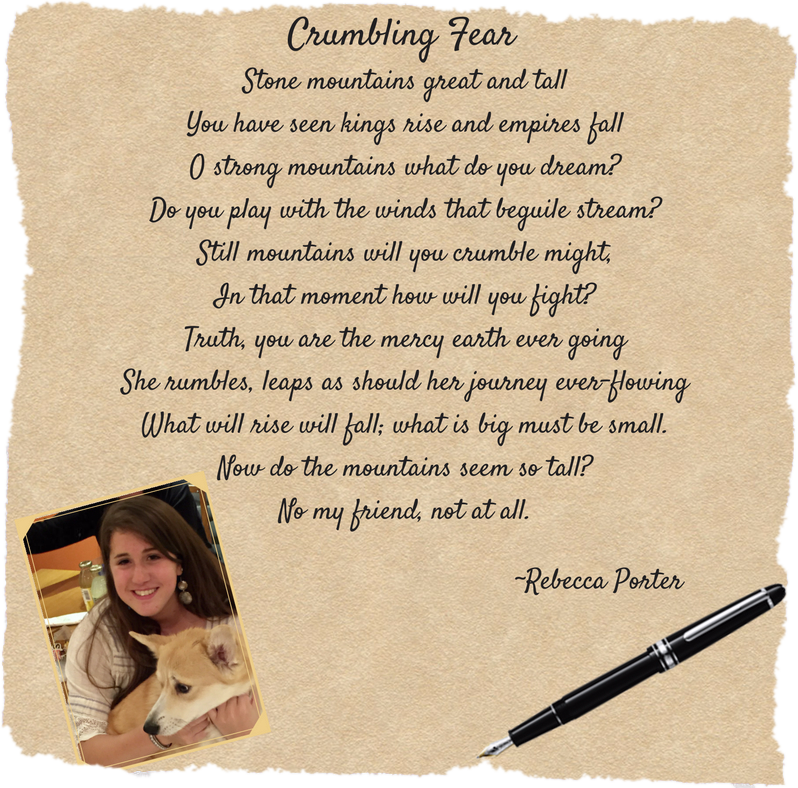 Crumbling Fear
Stone mountains great and tall
You have seen kings rise and empires fall
O strong mountains what do you dream?
Do you play with the winds that beguile stream?
Still mountains will you crumble might,
In that moment how will you fight?
Truth, you are the mercy earth ever going
She rumbles, leaps as should her journey ever-flowing
What will rise will fall; what is big must be small.
Now do the mountains seem so tall?
No my friend, not at all.
~Rebecca Porter